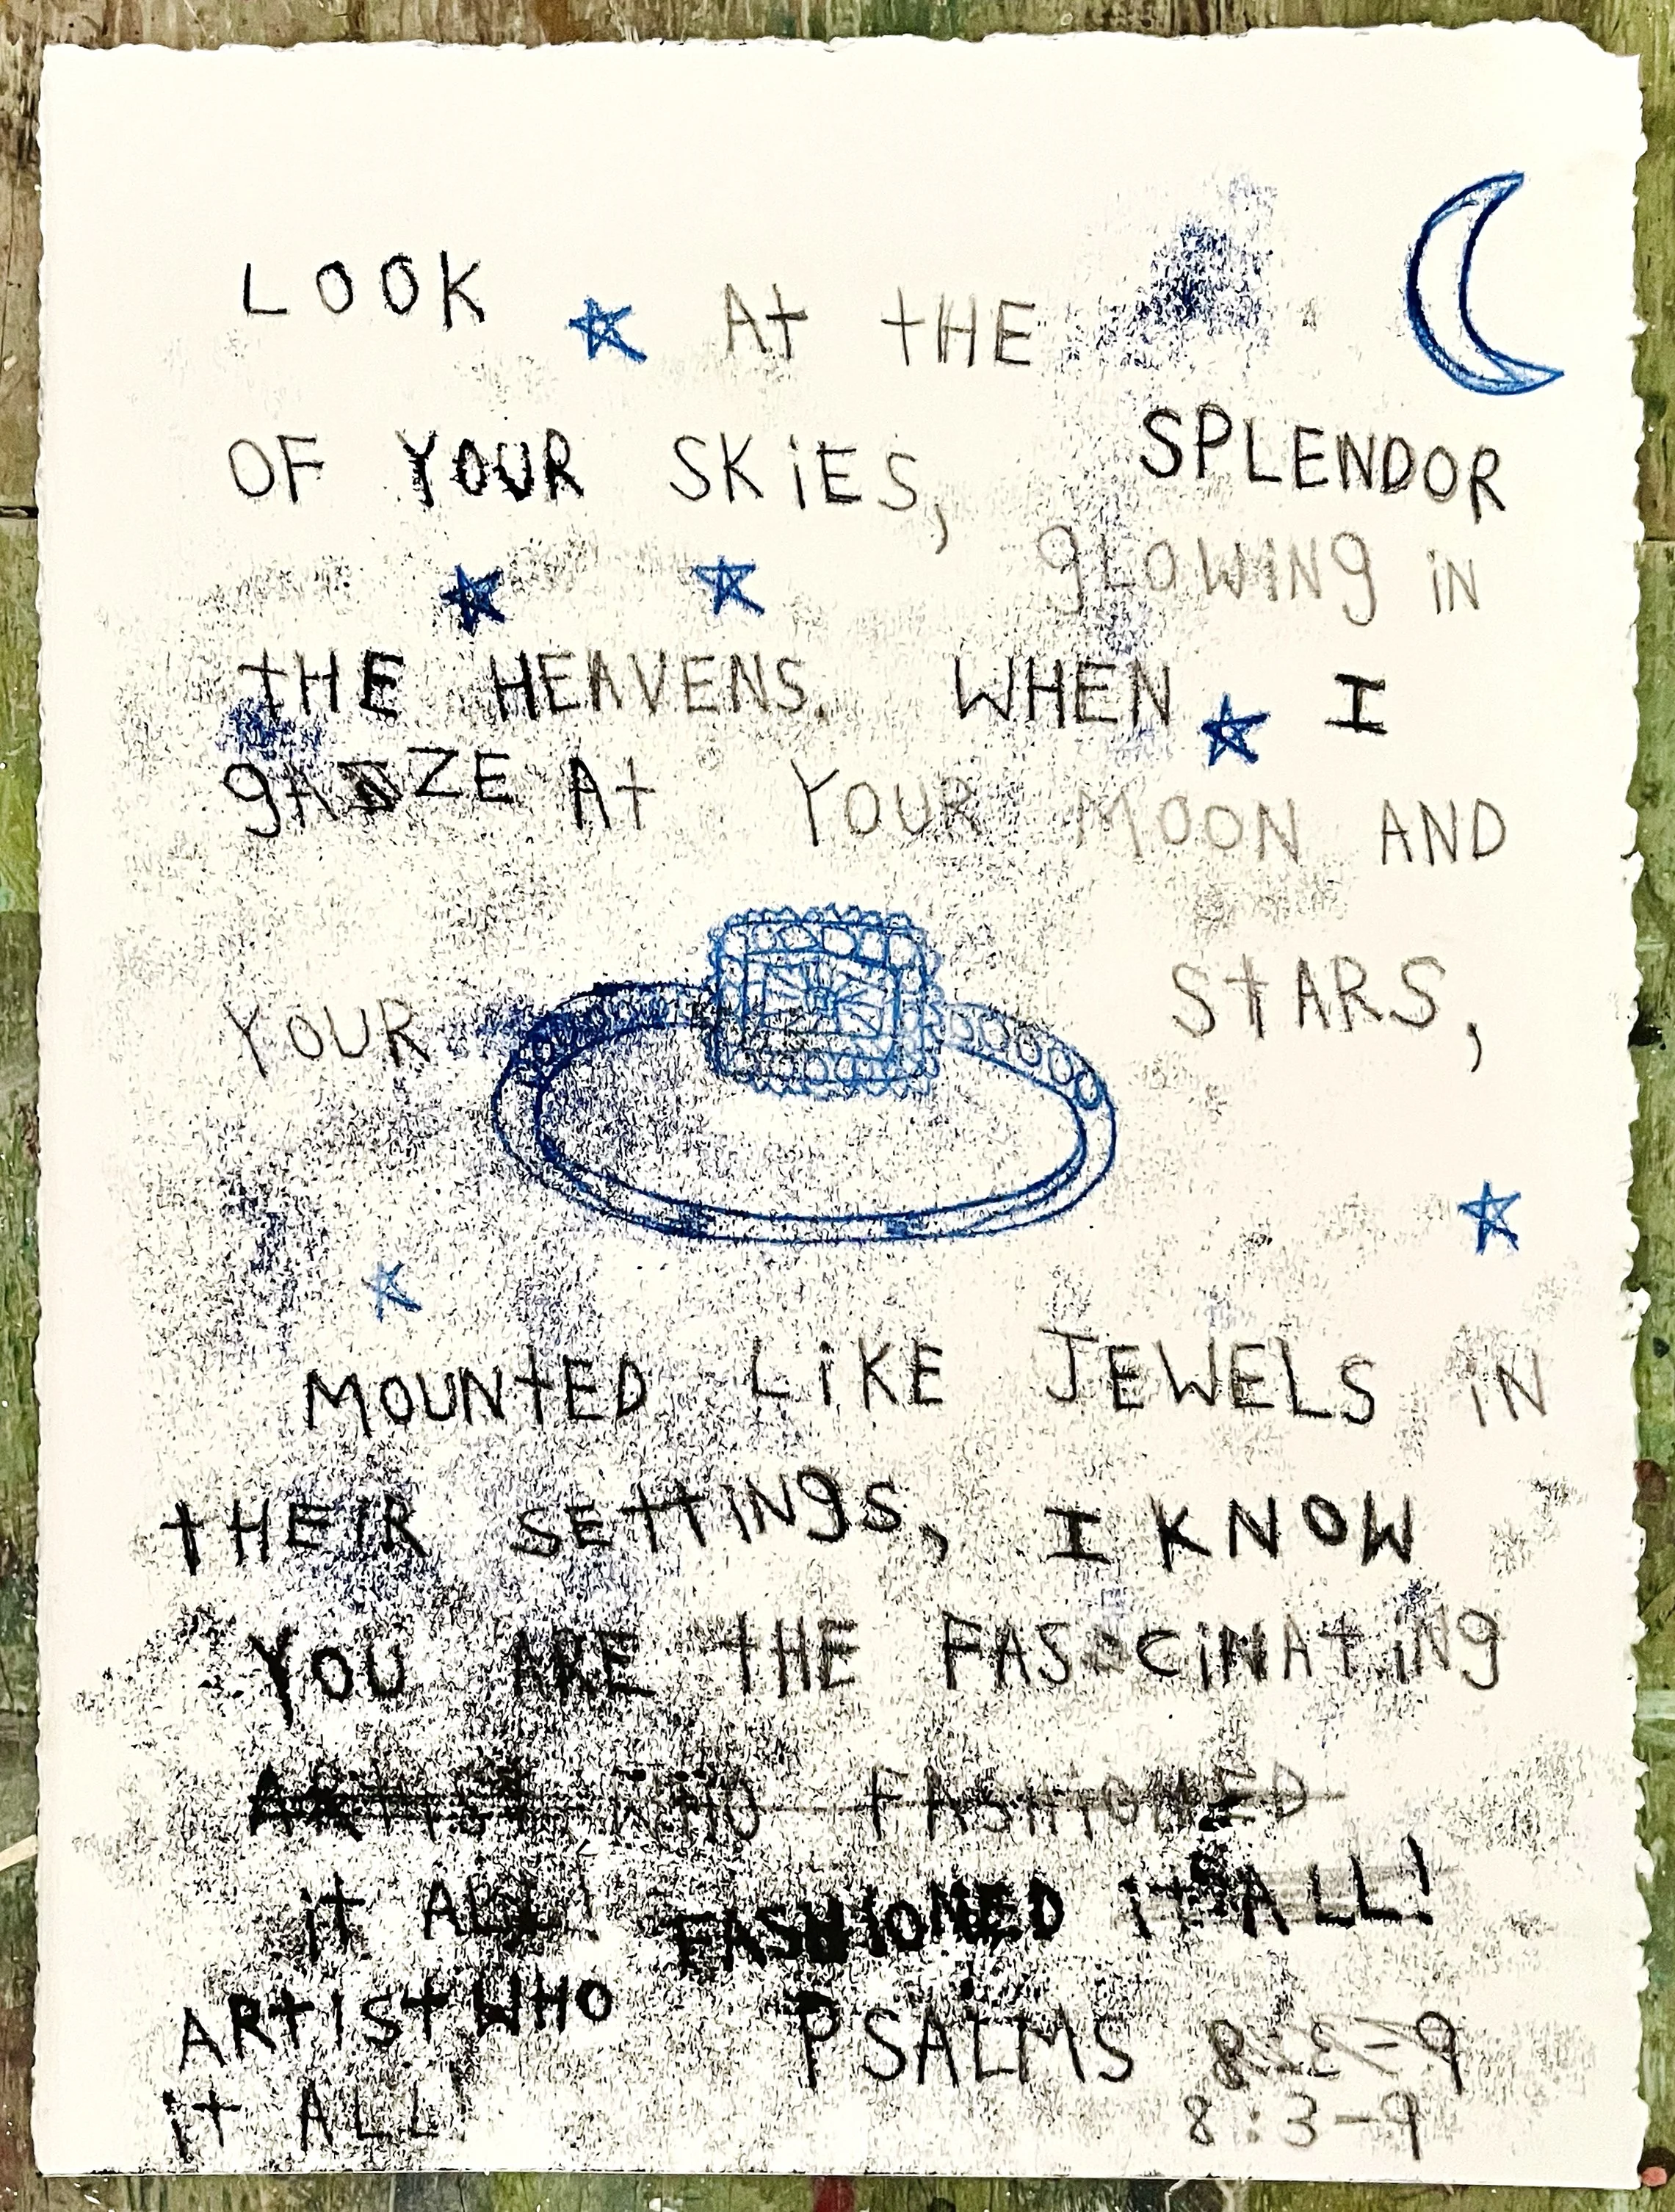 LOOK At tHE
OF YOUR SKiES, SPLENDOR
gLOWING iN
tHE HEAVENS. WHEN I
gAZE At YOUR MOON AND
YOUR StARS,
MOUNtED LiKE JEWELS iN
tHEIR SEttiNgS, I KNOW
YOU ARE tHE FASCiNAtiNg
ARtISt WHO FASHiONED
it ALL! FASHIONED it ALL!
ARtISt WHO
it ALL! PSALMS
8:3-9